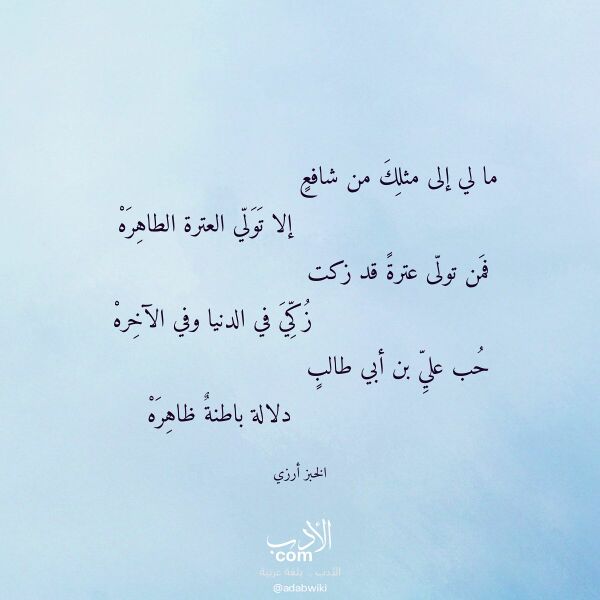 ما لي إلى مثلِكَ من شافعٍ
إلا تَوَلّي العترة الطاهِرَهْ
فمَن تولّى عترةً قد زكت
زُكِّيَ في الدنيا وفي الآخِرهْ
حُب عليِّ بن أبي طالبٍ
دلالة باطنةٌ ظاهِرَهْ
الخبز أرزي
الأدب
com
الأدب .. بلغة عربية
@adabwiki